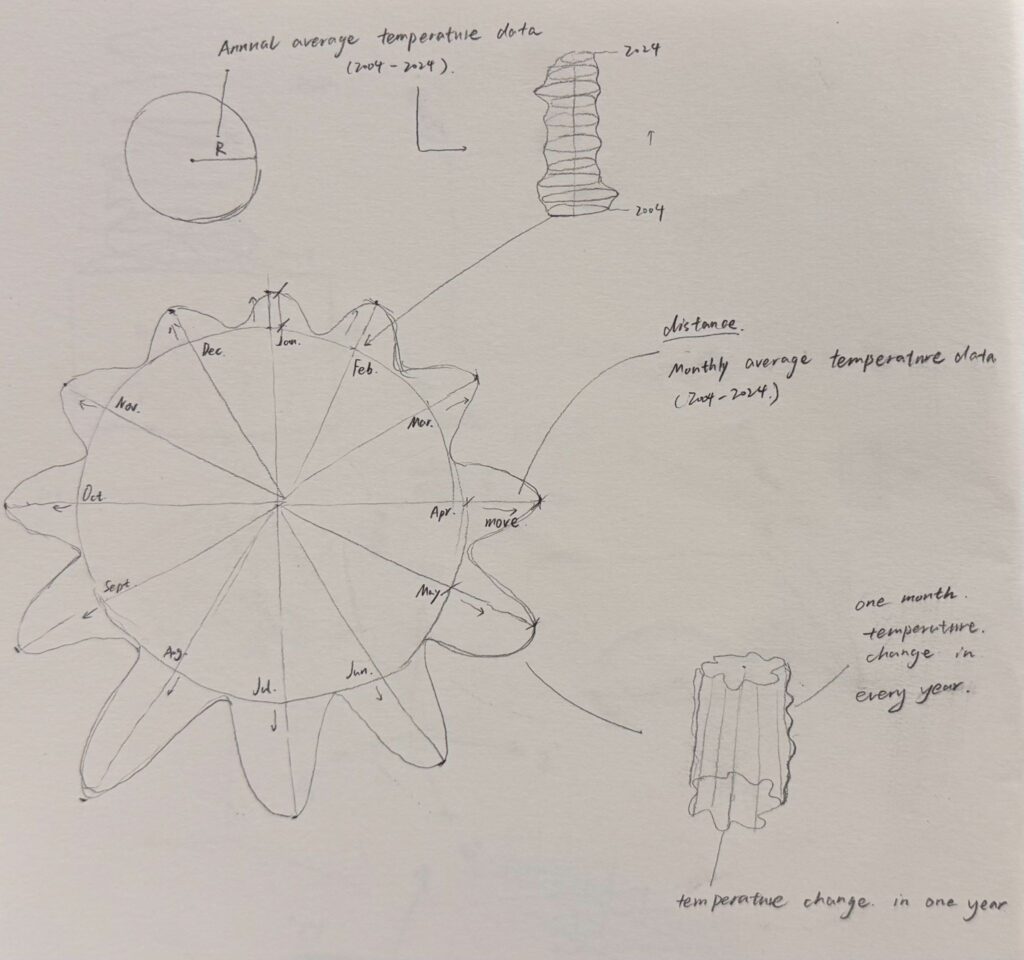 Annual average temperature data
(2004 - 2024).
R
2024
2004
distance.
Monthly average temperature data
(2004 - 2024.)
Jan.
Feb.
Mar.
Apr.
move.
May.
Jun.
Jul.
Ag.
Sept.
Oct
Nov.
Dec.
one month.
temperature.
change in
every year.
temperature change. in one year